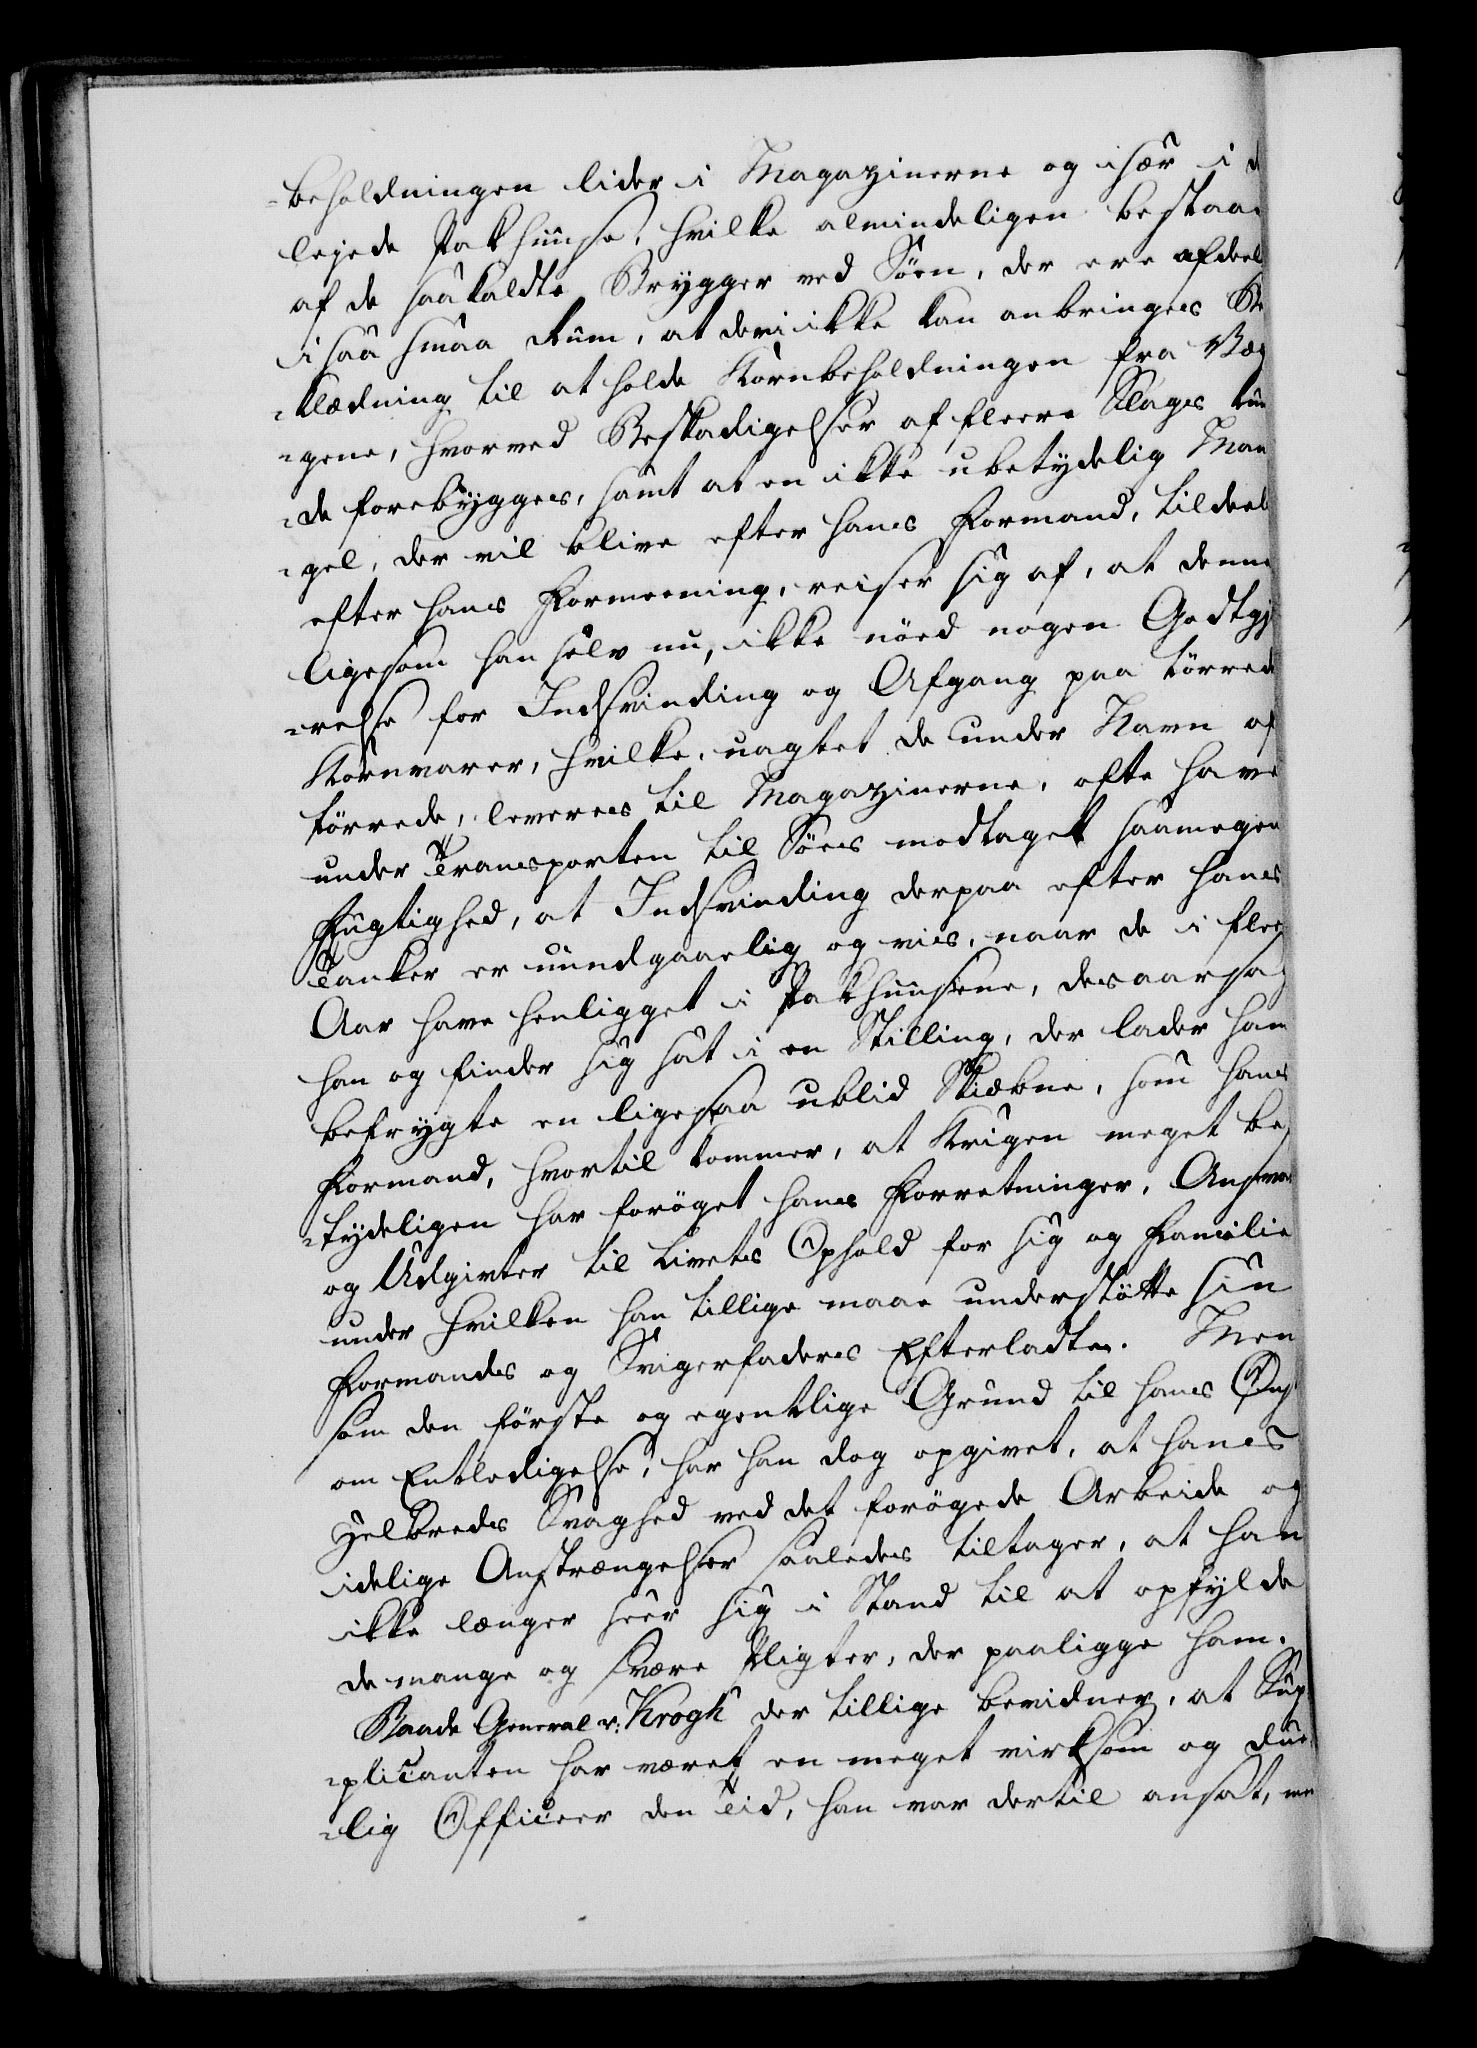 -beholdningen lider i Magazinerne og især i d
lejede Pakhuuse, hvilke almindeligen bestaae
af de saakaldte Brygger ved Söen, der ere afdeel
i saa smaa Rum, at deri ikke kan anbringes Be
-klædning til at holde Kornbeholdningen fra Væg
-gene, hvorved Beskadigelser af fleere Slages kun
-de forebygges, samt at en ikke ubetydelig Man
-gel, der vil blive efter hans Formand, tildeels
efter hans Formeening, reiser sig af, at denne
ligesom han selv nu, ikke nöed nogen Godtgjö
-relse for Indsvinding og Afgang paa törrede
Kornvarer, hvilke, uagtet de under Navn af
törrede, leveres til Magazinerne, ofte have
under Transporten til Söes modtaget saamegen
Fugtighed, at Indsvinding derpaa efter hans
Tanker er uundgaaelig og vis, naar de i fleer
Aar have henligget i Pakhuusene, desaarsag
han og finder sig sat i en Stilling, der lader ham
befrygte en ligesaa ublid Skiæbne, som hans
Formand, hvortil kommer, at Krigen meget be
-tydeligen har foröget hans Forretninger, Ansvar
og Udgivter til Livets Ophold for sig og Familie
under hvilken han tillige maae understötte sin
Formands og Svigerfaders Efterladte. Men
som den förste og egentlige Grund til hans Öns
om Entledigelse, har han dog opgivet, at hans
Helbreds Svaghed ved det forögede Arbeide og
idelige Anstrængelser saaledes tiltager, at han
ikke længer seer sig i Stand til at opfylde
de mange og svære Pligter, der paaligge ham.
Baade General v: Krogh der tillige bevidner, at Sup
-plicanten har været en meget virksom og due
-lig Officeer den Tid, han var dertil ansat, me